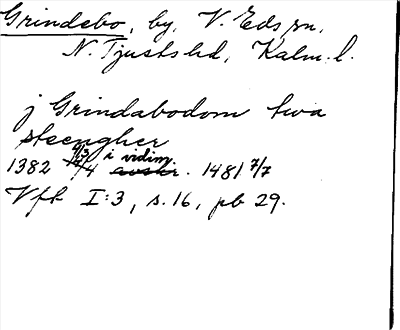 Grindebo, by, V. Eds sn,
N. Tjusts hd, Kalm. l.
j Grindabodom twa
steengher
1382 4/4 i vidim. avskr. 1481 7/7
Vfk I:3, s. 16, pb 29.